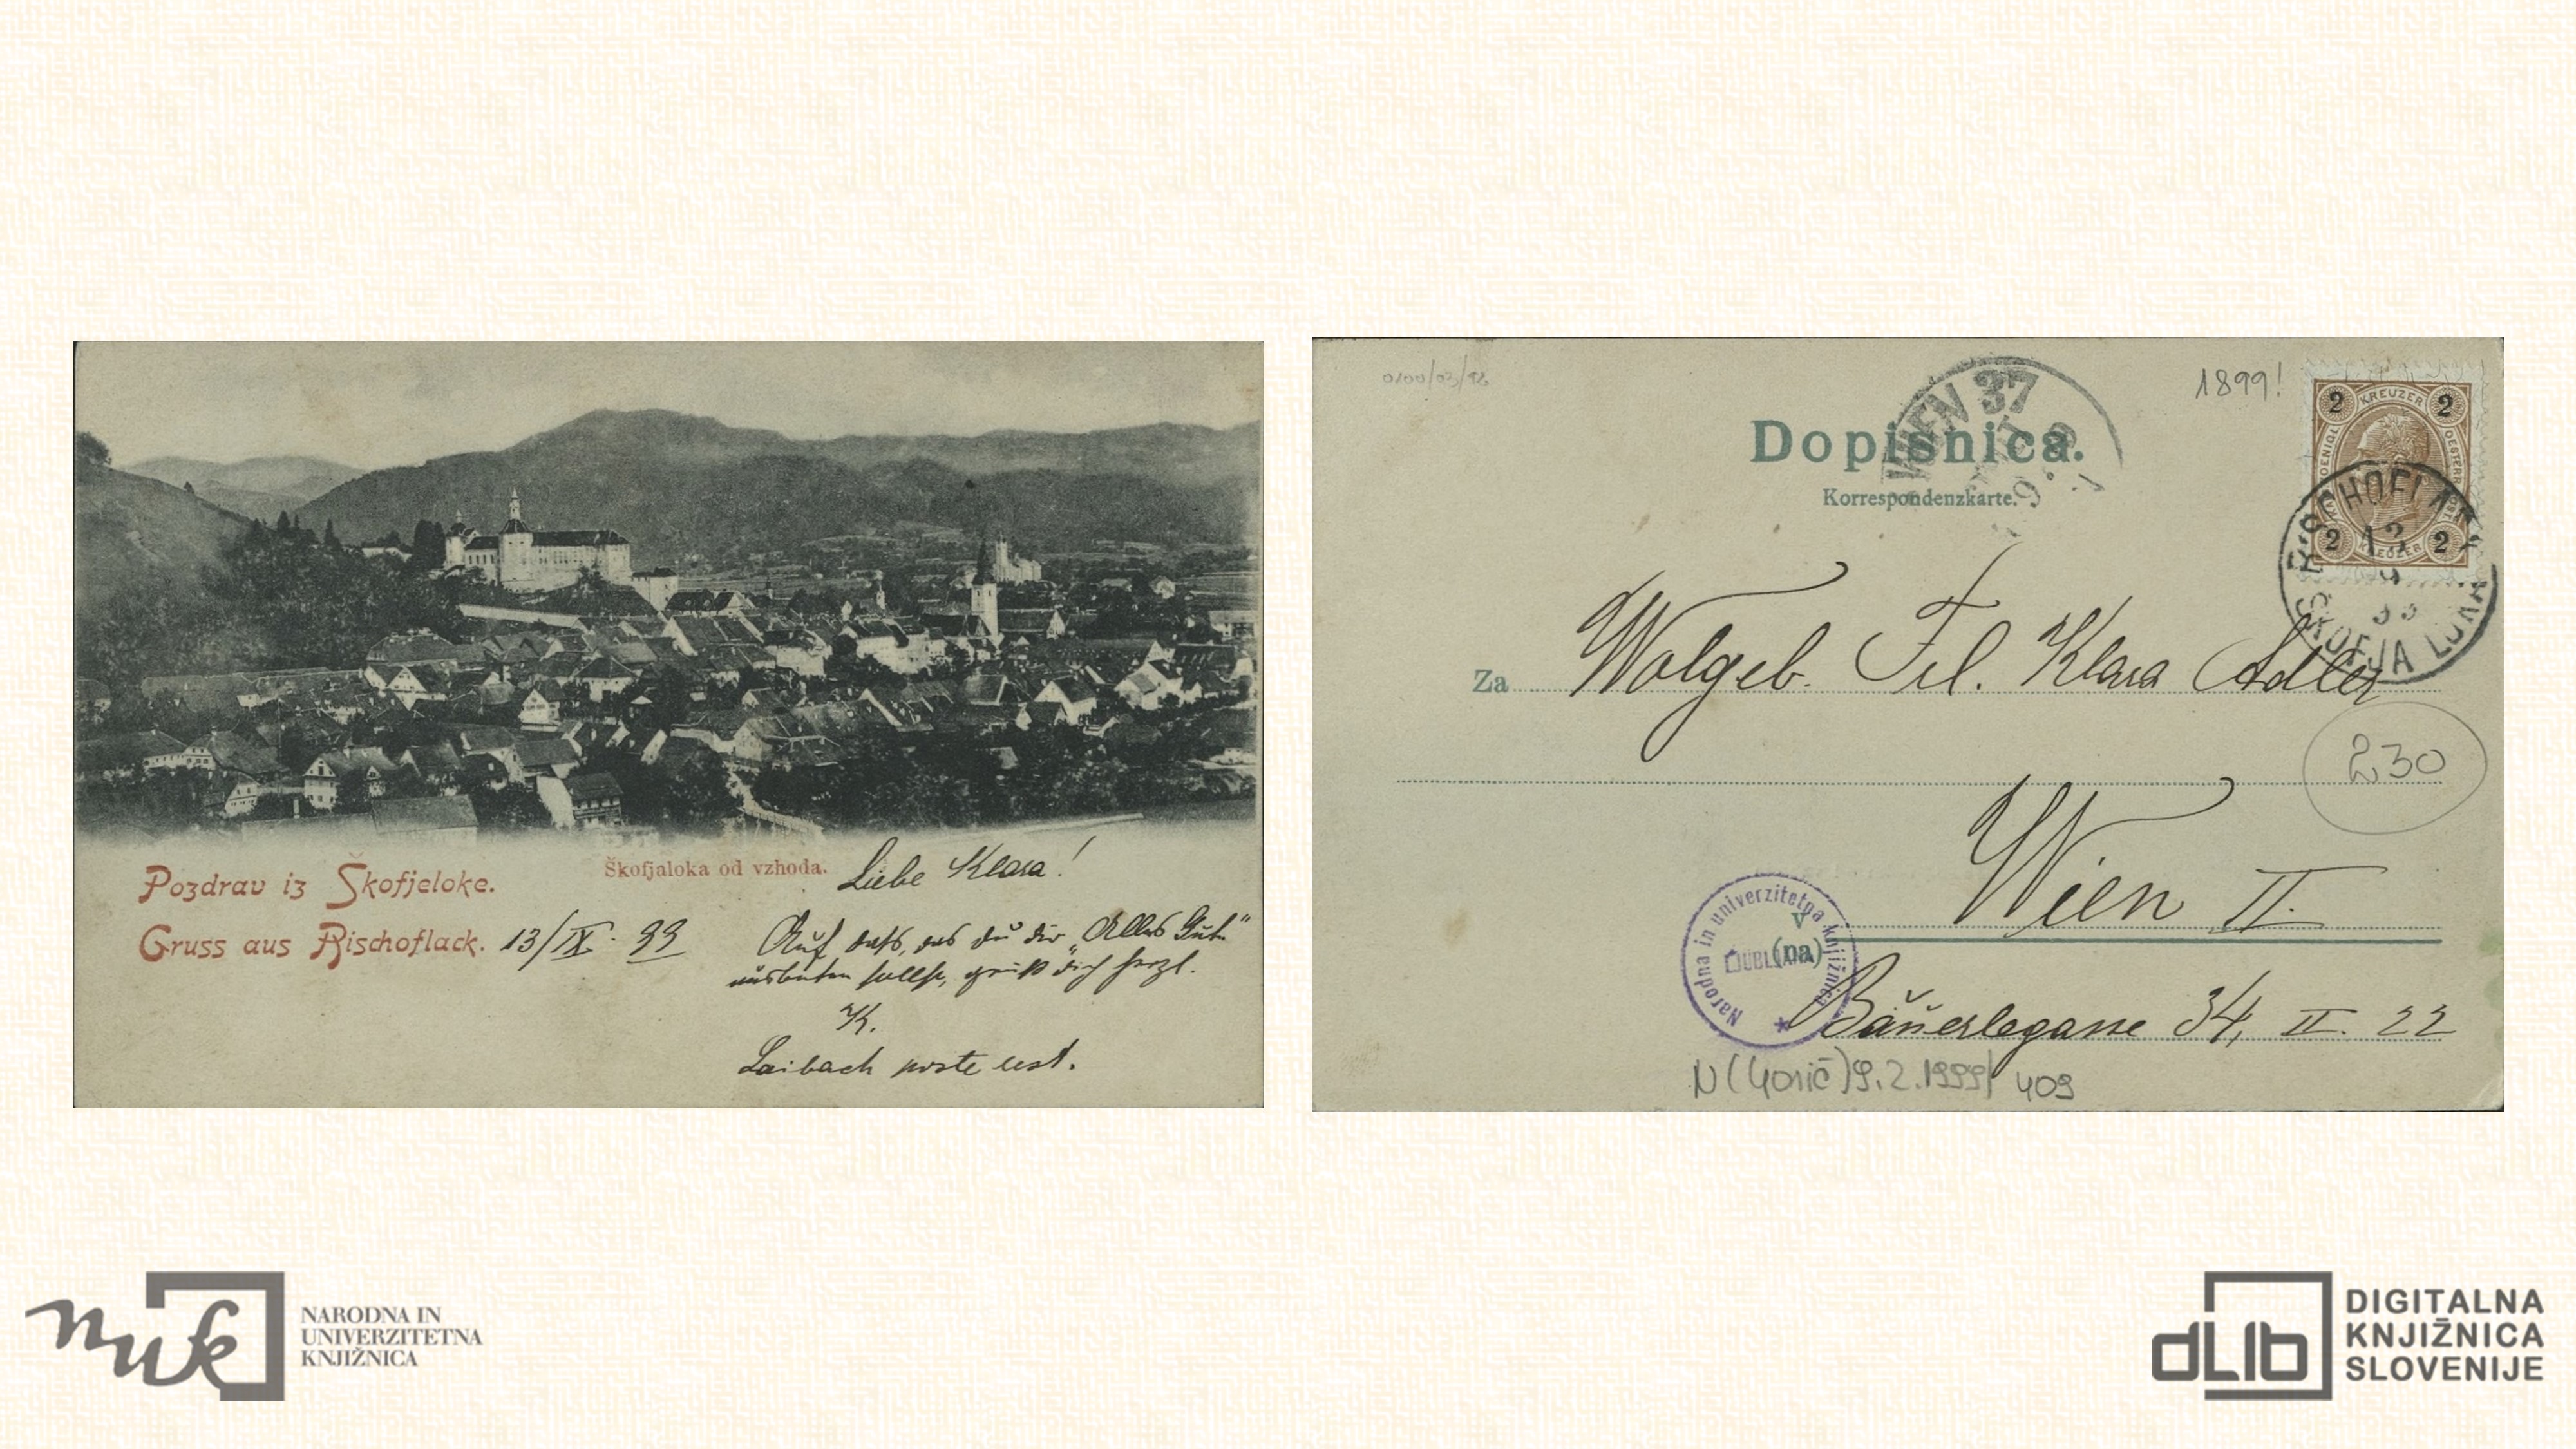 Pozdrav iz Škofjeloke.
Gruss aus Bischoflack.
Škofjaloka od vzhoda.
13/IX. 99
Liebe Klara!
Auf daß, das du dir „Alles Gut“
ausbitten sollst, grüß dich herzl.
K.
Laibach poste rest.
1899!
WIEN 37
Dopisnica.
Korrespondenzkarte.
2 KREUZER 2
2 KREUZER 2
BISCHOFLACK
13
9
99
ŠKOFJA LOKA
Za Wolgeb. Frl. Klara Adler
230
Wien II.
v
(na)
Narodna in univerzitetna knjižnica
LJUBLJANA
Bäuerlegasse 34, II. 22
N (Gorič) 9.2.1999/ 409
nuk
NARODNA IN
UNIVERZITETNA
KNJIŽNICA
dLib
DIGITALNA
KNJIŽNICA
SLOVENIJE